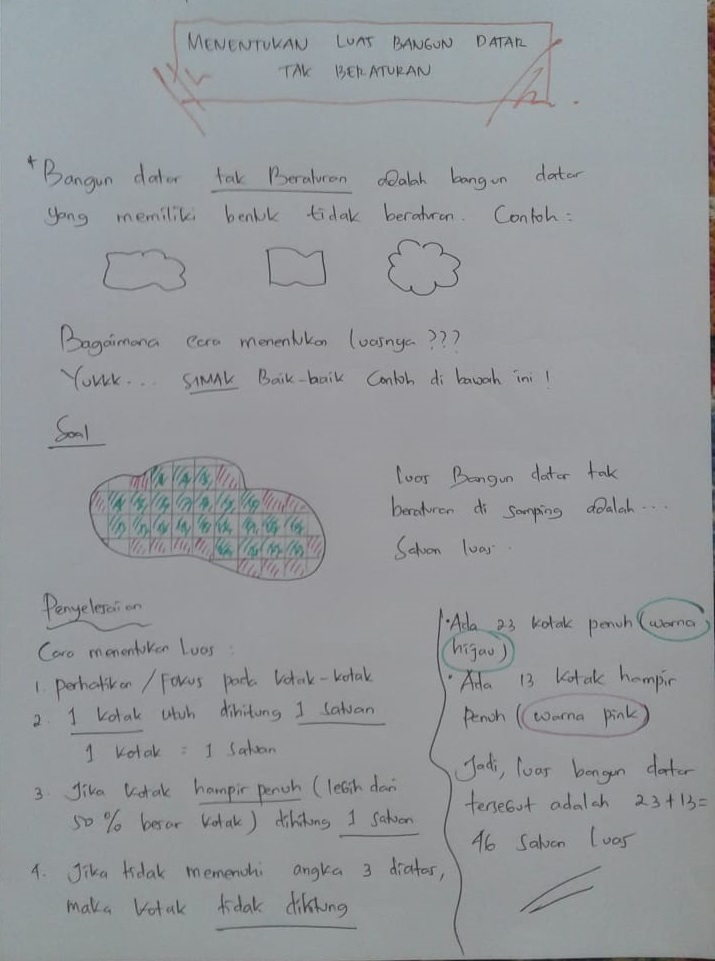 MENENTUKAN LUAS BANGUN DATAR
TAK BERATURAN
* Bangun datar tak Beraturan adalah bangun datar
yang memiliki bentuk tidak beraturan. Contoh :
Bagaimana cara menentukan luasnya ???
Yukkk... SIMAK Baik-baik Contoh di bawah ini !
Soal
luas Bangun datar tak
beraturan di samping adalah ...
Satuan luas.
Penyelesaian
Cara menentukan Luas :
1. Perhatikan / Fokus pada kotak-kotak
2. 1 kotak utuh dihitung 1 satuan
1 kotak = 1 satuan
3. Jika kotak hampir penuh (lebih dari
50 % besar kotak) dihitung 1 satuan
4. Jika tidak memenuhi angka 3 diatas,
maka kotak tidak dihitung
• Ada 23 kotak penuh (warna
hijau)
• Ada 13 kotak hampir
penuh (warna pink)
Jadi, luas bangun datar
tersebut adalah 23+13=
46 satuan luas